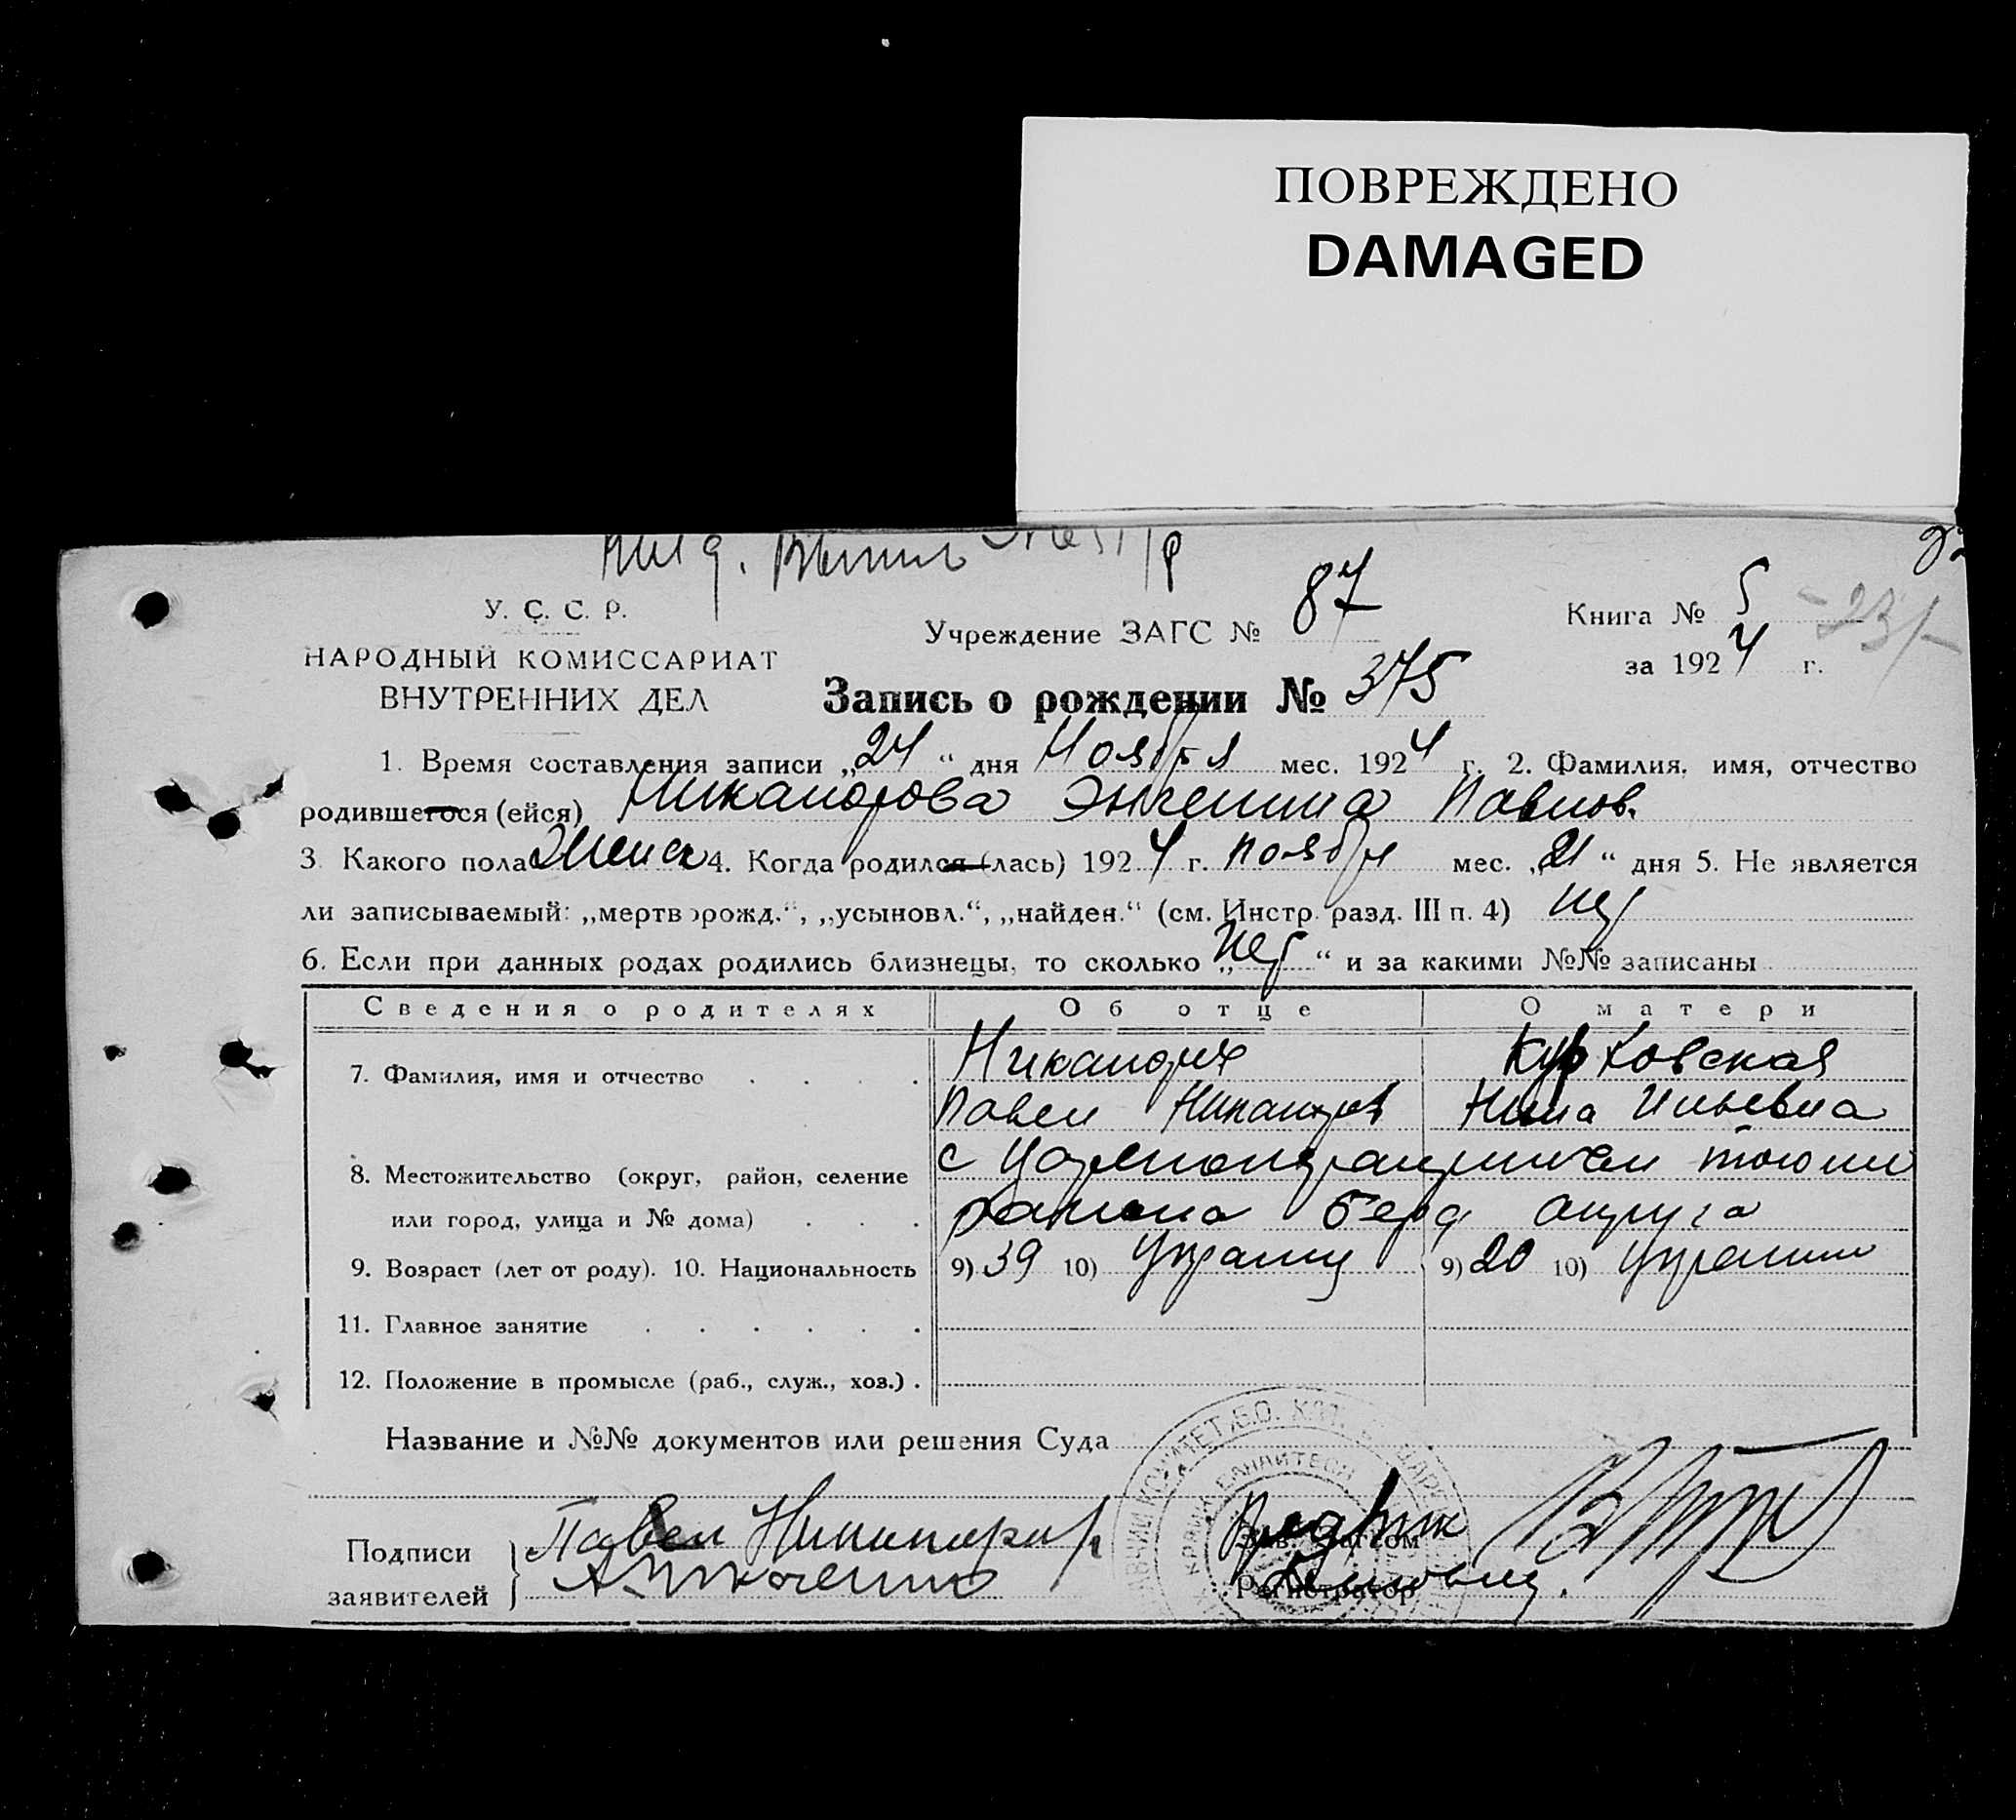 ПОВРЕЖДЕНО
DAMAGED
У. С. С. Р.
НАРОДНЫЙ КОМИССАРИАТ
ВНУТРЕННИХ ДЕЛ
Учреждение ЗАГС № 87
Книга № 5 -23/-
за 1924 г.
Запись о рождении № 375
1. Время составления записи „24“ дня Ноября мес. 1924 г. 2. Фамилия, имя, отчество
родившегося (ейся) Никандрова Павлов.
3. Какого пола Женск 4. Когда родился (лась) 1924 г. ноября мес. „21“ дня 5. Не является
ли записываемый: „мертворожд.“, „усыновл.“, „найден.“ (см. Инстр. разд. III п. 4) нет
6. Если при данных родах родились близнецы, то сколько „нет“ и за какими №№ записаны
Сведения о родителях Об отце О матери
7. Фамилия, имя и отчество . . . . Никандров Курковская
Павел Никандров Нина Ильевна
8. Местожительство (округ, район, селение с
или город, улица и № дома) . . . района Берд округа
9. Возраст (лет от роду). 10. Национальность 9) 39 10) Украинц 9) 20 10) Украин
11. Главное занятие . . . . . .
12. Положение в промысле (раб., служ., хоз.) .
Название и №№ документов или решения Суда
Подписи
заявителей
Павел
Зав. Загсом
Регистратор